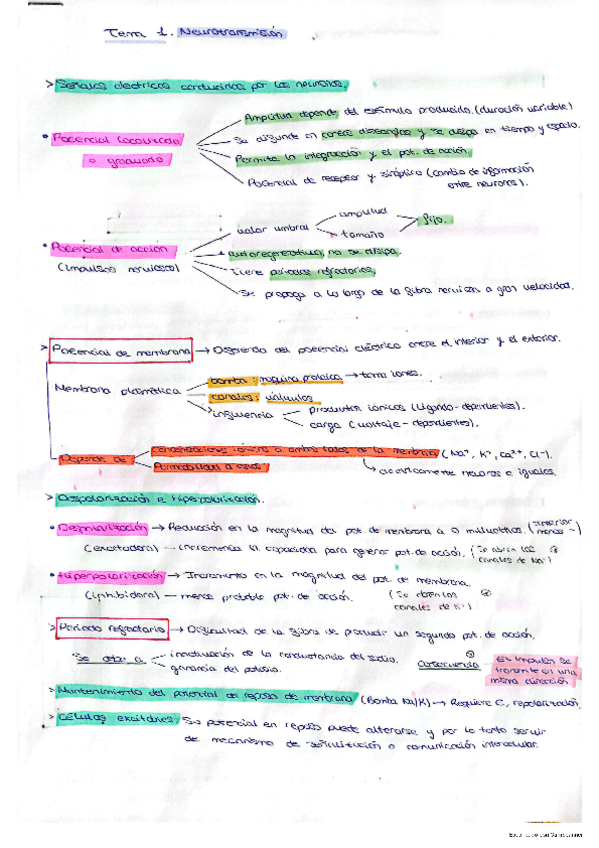 Tema 1. Neurotransmisión
> Señales eléctricas conducidas por las neuronas.
Amplitud depende del estímulo producido. (duración variable)
• Potencial localizado o graduado
Se difunde en cortas distancias y se disipa en tiempo y espacio.
Permite la integración y el pot. de acción.
Potencial de receptor y sináptico (cambio de información entre neuronas).
• Potencial de acción (impulsos nervioso)
valor umbral
amplitud
tamaño
fijo.
autoregenerativa, no se disipa.
Tiene períodos refractarios.
Se propaga a lo largo de la fibra nerviosa a gran velocidad.
> Potencial de membrana → Diferencia del potencial eléctrico entre el interior y el exterior.
Membrana plasmática
bomba: máquina proteica → toma iones.
canales: válvulas
influencia
productos iónicos (ligando-dependientes).
carga (voltaje-dependientes).
Depende de
concentraciones iónicas a ambos lados de la membrana (Na+, K+, Ca2+, Cl-).
Permeabilidad a esos
eléctricamente neutros e iguales.
> Despolarización e hiperpolarización.
• Despolarización → Reducción en la magnitud del pot. de membrana a 0 milivoltios. (interior menos -)
(excitadora) — incrementa la capacidad para generar pot. de acción. (Se abren los canales de Na+)
• Hiperpolarización → Incremento en la magnitud del pot. de membrana.
(inhibidora) — menos probable pot. de acción. (Se abren los canales de K+)
> Periodo refractario → Dificultad de la fibra de producir un segundo pot. de acción.
Se debe a
inactivación de la conductancia del sodio.
ganancia del potasio.
Consecuencia → El impulso se transmite en una misma dirección
> Mantenimiento del potencial de reposo de membrana (Bomba Na/K) → Requiere E, repolarización.
> Células excitables: Su potencial en reposo puede alterarse y por lo tanto servir
de mecanismo de señalización o comunicación intercelular.